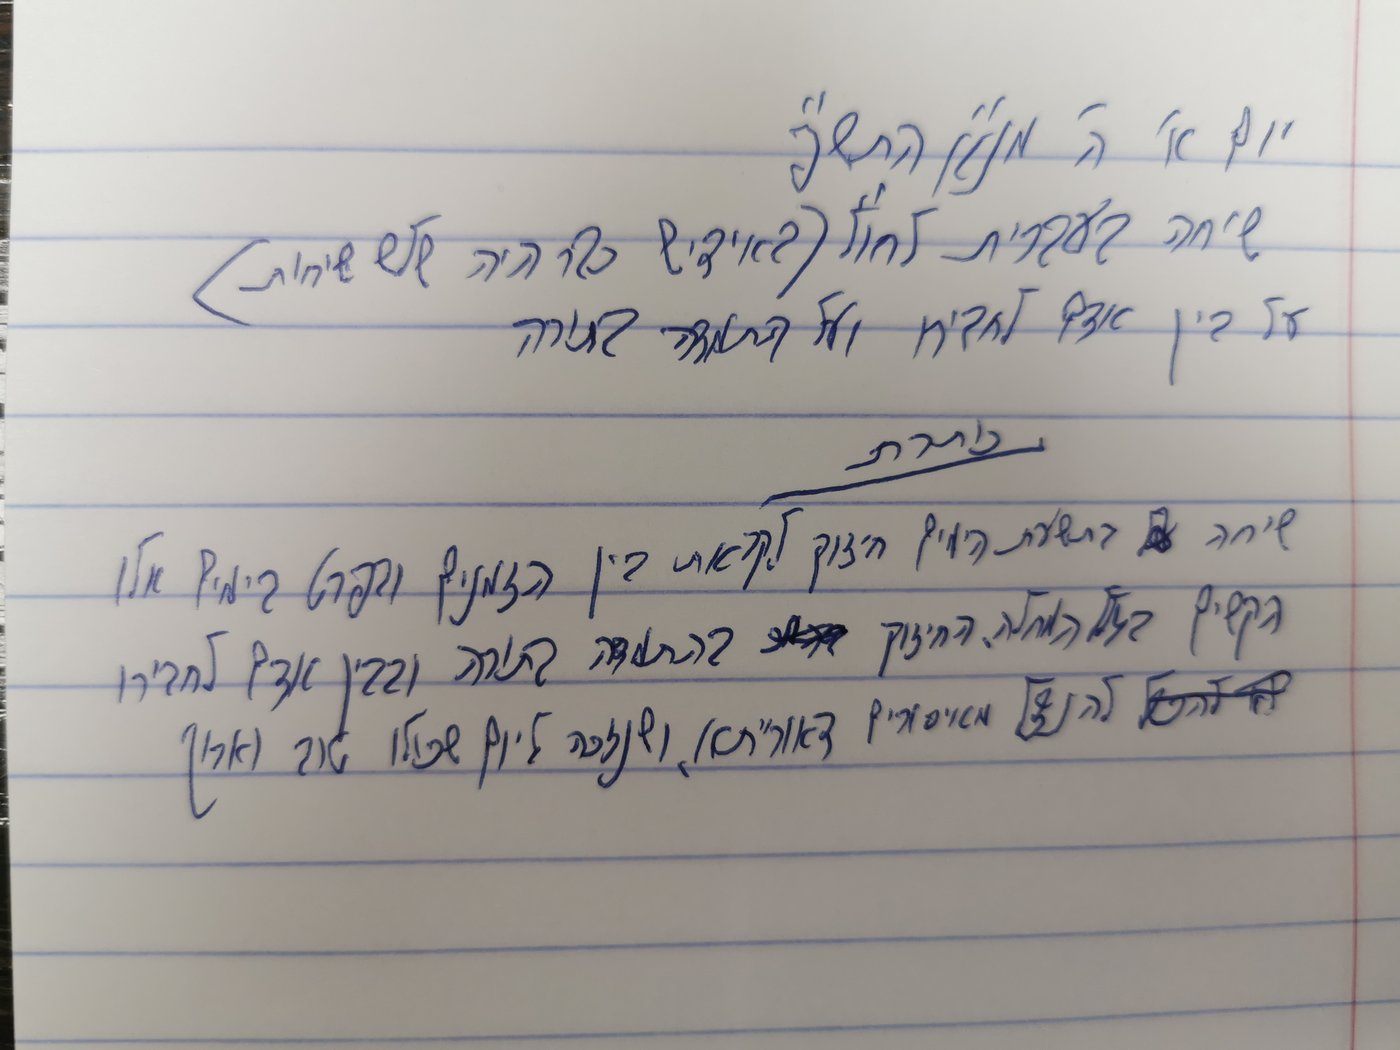 יום א' ה' מנ"א התש"פ
שיחה בעברית לחו"ל (באידיש כבר היה שלש שיחות)
על בין אדם לחבירו ועל התמדה בתורה
כותרת
שיחה בתשעת הימים חיזוק לקראת בין הזמנים ובפרט בימים אלו
הקשים בצל המחלה, החיזוק בהתמדה בתורה ובבין אדם לחבירו
להנצל מאיסורים דאורייתא, ושנזכה ליום שכולו טוב וארוך